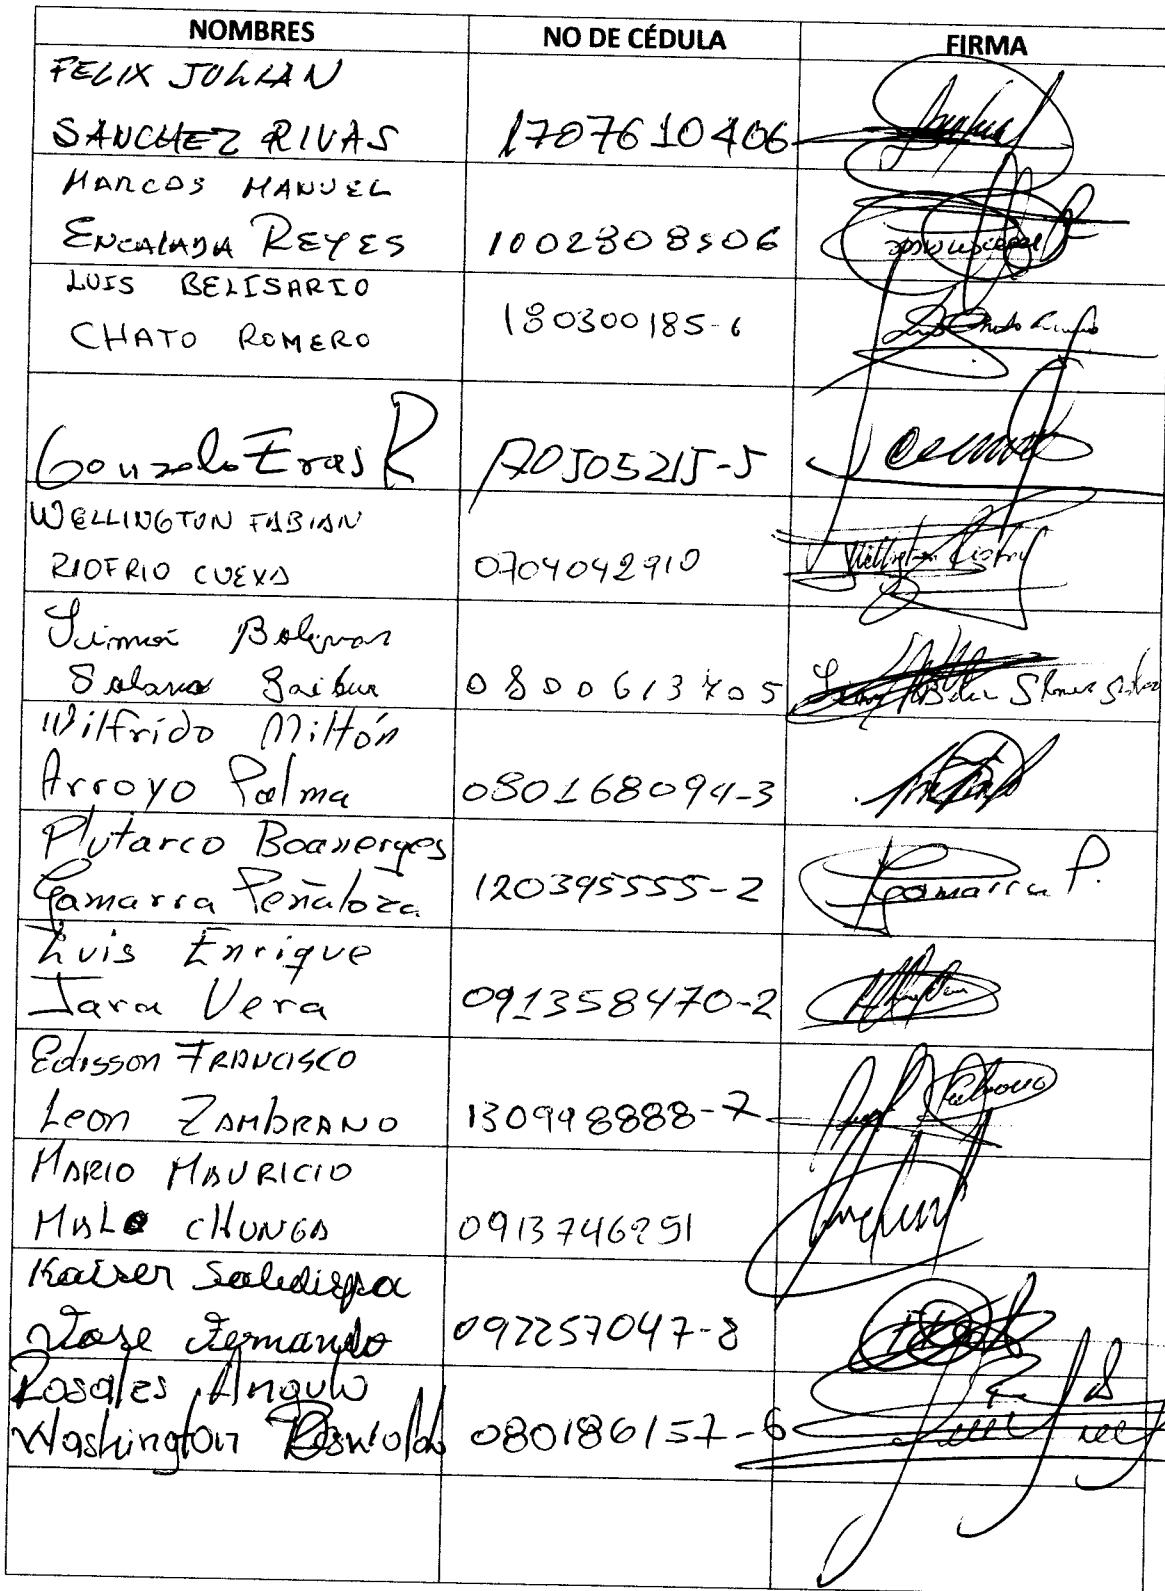 NOMBRES NO DE CÉDULA FIRMA
FELIX JULIAN
SANCHEZ RIVAS 1707610406
MARCOS MANUEL
ENCALADA REYES 1002808506
LUIS BELISARIO
CHATO ROMERO 180300185-6
Gonzalo Eras R 170505215-5
WELLINGTON FABIAN
RIOFRIO CUEVA 0704042910
Simón Bolivar
Solano Gaibur 0800613705
Wilfrido Miltón
Arroyo Palma 080168094-3
Plutarco Boanerges
Gamarra Peñaloza 120395555-2 Gamarra P.
Luis Enrique
Jara Vera 091358470-2
Edisson FRANCISCO
Leon ZAMBRANO 130998888-7
MARIO MAURICIO
MALO CHUNGA 0913746291
Kaiser Saldispa
Jose Fernando 092257047-8
Rosales Angulo
Washington Oswaldo 080186157-6